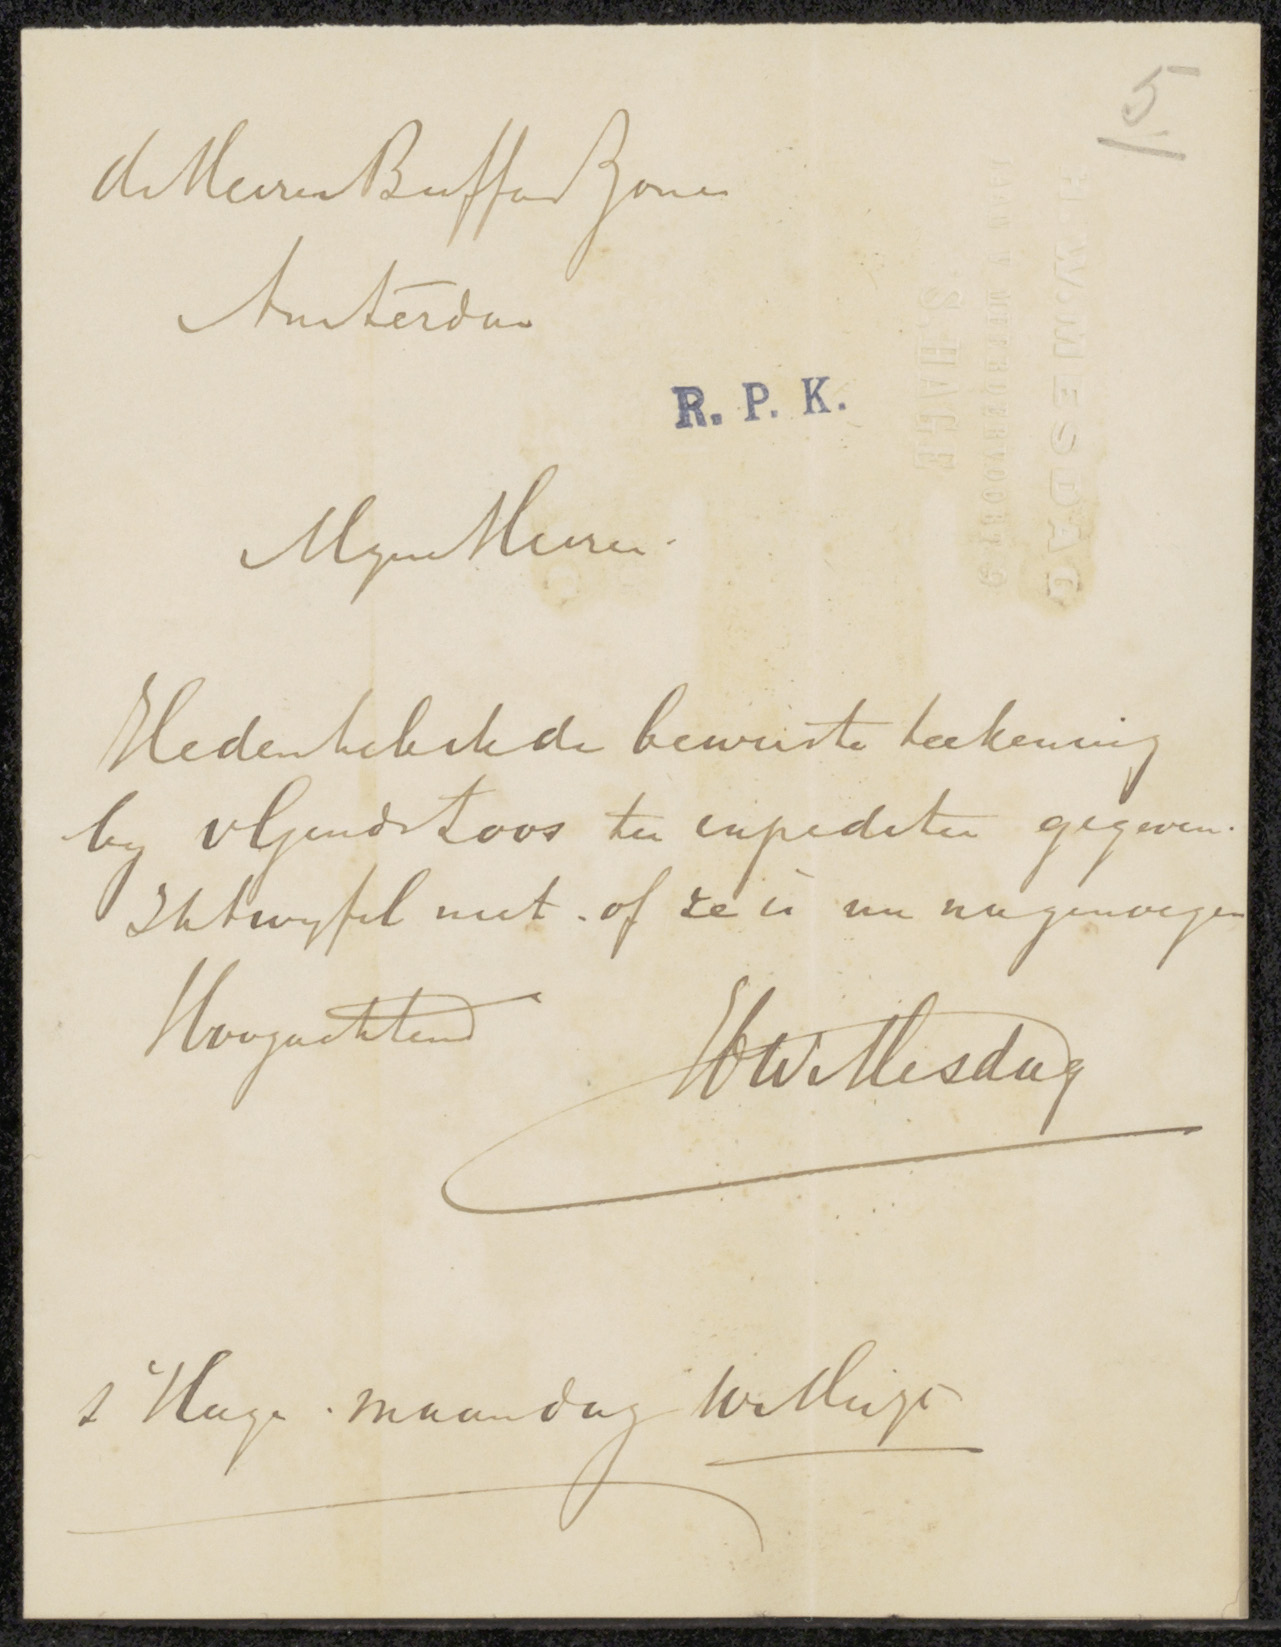 5
de Heeren Buffa en Zonen
Amsterdam
R. P. K.
H. W. MESDAG
LAAN V. MEERDERVOORT 9
S. HAGE
Myne Heeren.
Heden heb ik de bewuste teekening
by vlgends Loos ter expeditie gegeven.
Ik twyfel niet. of ze is nu naar genoegen
Hoogachtend HW Mesdag
s Hage. maandag